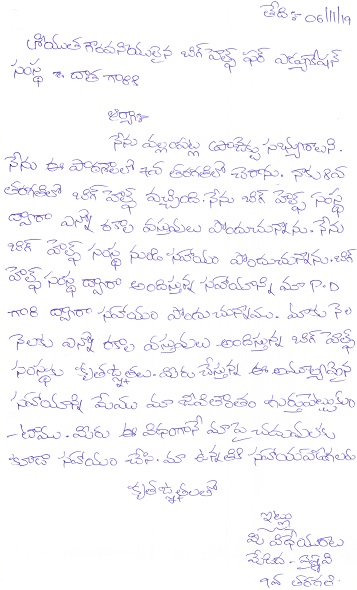 తేది : 06/11/19
శ్రీయుత గౌరవనీయులైన బిగ్ హెల్ప్ ఫర్ ఎడ్యుకేషన్
సంస్థ కి. దాత గారికి
నేను పల్లగట్ల ప్రాజెక్టు
నేను ఈ పాఠశాలలో 7వ తరగతిలో చేరాను. నాకు 8వ
తరగతిలో బిగ్ హెల్ప్ వచ్చింది. నేను బిగ్ హెల్ప్ సంస్థ
ద్వారా ఎన్నో రకాల వస్తువులు పొందుచున్నాను. నేను
బిగ్ హెల్ప్ సంస్థ నుండి సహాయం పొందుచున్నాను. బిగ్
హెల్ప్ సంస్థ ద్వారా అందిస్తున్న సహాయాన్ని మా P.D
గారి ద్వారా సహాయం పొందుచున్నాము. మాకు నెల
నెలకు ఎన్నో రకాల వస్తువులు అందిస్తున్న బిగ్ హెల్ప్
సంస్థకు కృతజ్ఞతలు. మీరు చేస్తున్న ఈ అమూల్యమైన
సహాయాన్ని మేము మా జీవితాంతం గుర్తుపెట్టుకుం
-టాము. మీరు ఈ విధంగానే మా పై చదువులకు
కూడా సహాయం చేసి. మా ఉన్నతికి సహాయపడగలరు
కృతజ్ఞతలతో
ఇట్లు
మీ విధేయురాలు
9వ తరగతి.